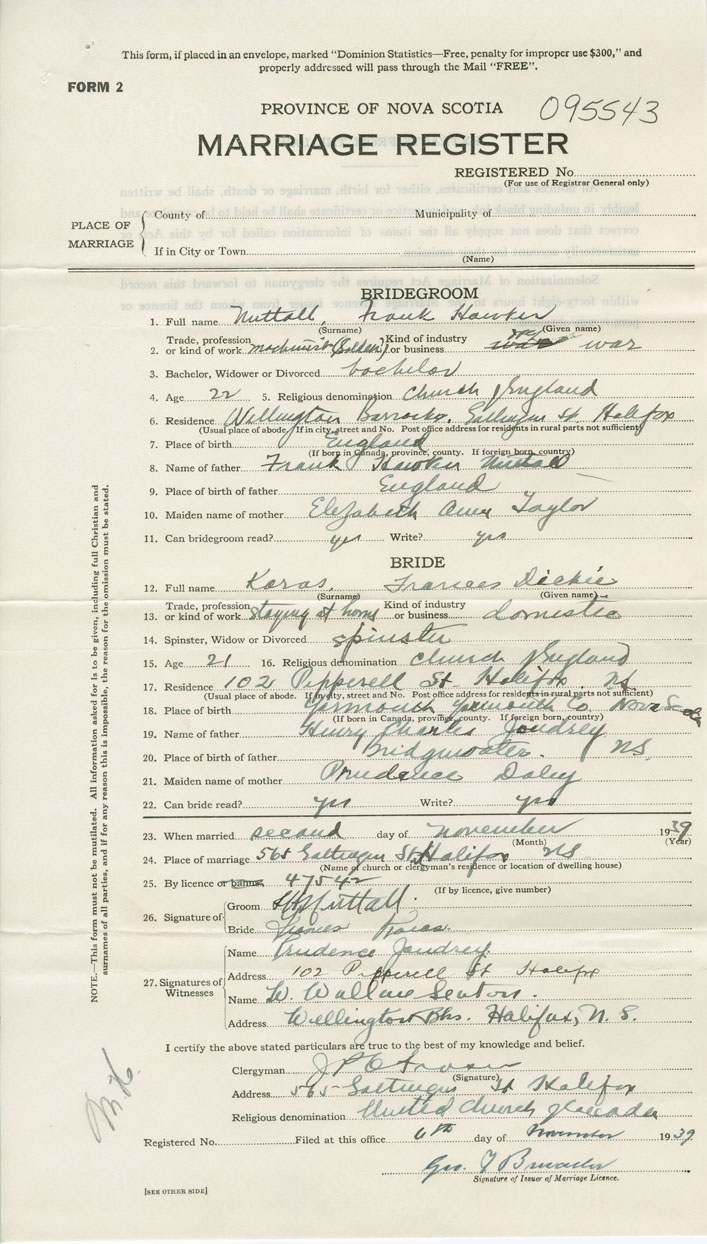 This form, if placed in an envelope, marked "Dominion Statistics—Free, penalty for improper use $300," and
properly addressed will pass through the Mail "FREE".
FORM 2
PROVINCE OF NOVA SCOTIA 095543
MARRIAGE REGISTER
REGISTERED No.
(For use of Registrar General only)
PLACE OF MARRIAGE
County of Municipality of
If in City or Town
(Name)
BRIDEGROOM
1. Full name Nuttall, Frank Hawker
(Surname) (Given name)
2. Trade, profession or kind of work machinist (Soldier) Kind of industry or business war
3. Bachelor, Widower or Divorced bachelor
4. Age 22 5. Religious denomination Church of England
6. Residence Wellington Barracks. Gottingen St Halifax
(Usual place of abode. If in city, street and No. Post office address for residents in rural parts not sufficient)
7. Place of birth England
(If born in Canada, province, county. If foreign born, country)
8. Name of father Frank Hawker Nuttall
9. Place of birth of father England
10. Maiden name of mother Elizabeth Ann Taylor
11. Can bridegroom read? yes Write? yes
BRIDE
12. Full name Koras, Frances Dickie
(Surname) (Given name)
13. Trade, profession or kind of work staying at home Kind of industry or business domestic
14. Spinster, Widow or Divorced spinster
15. Age 21 16. Religious denomination Church of England
17. Residence 102 Pepperell St. Halifax NS
(Usual place of abode. If in city, street and No. Post office address for residents in rural parts not sufficient)
18. Place of birth Yarmouth Yarmouth Co. Nova Scotia
(If born in Canada, province, county. If foreign born, country)
19. Name of father Henry Charles Joudrey
20. Place of birth of father Bridgewater. NS.
21. Maiden name of mother Prudence Daley
22. Can bride read? yes Write? yes
23. When married second day of November 1939
(Month) (Year)
24. Place of marriage 565 Gottingen St. Halifax NS
(Name of church or clergyman's residence or location of dwelling house)
25. By licence or banns 47542
(If by licence, give number)
26. Signature of
Groom Nuttall.
Bride Frances Koras.
27. Signatures of Witnesses
Name Prudence Joudrey.
Address 102 Pepperell St Halifax
Name W. Wallace Seaton.
Address Wellington Bks. Halifax, N.S.
I certify the above stated particulars are true to the best of my knowledge and belief.
Clergyman
(Signature)
Address 565 Gottingen St Halifax
Religious denomination United Church of Canada
Registered No. Filed at this office 6th day of November 1939
Geo.
Signature of Issuer of Marriage Licence.
[SEE OTHER SIDE]
NOTE.—This form must not be mutilated. All information asked for is to be given, including full Christian and
surnames of all parties, and if for any reason this is impossible, the reason for the omission must be stated.